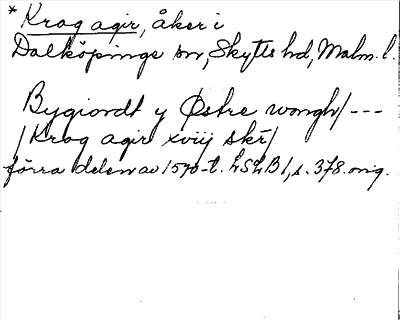 * Krog agir, åker i
Dalköpinge sn, Skytts hd, Malm. l.
Bygiordt y Østre wongh/ ---
/Krog agir xviij skr/
förra delen av 1570-t. LSLB 1, s. 378. orig.